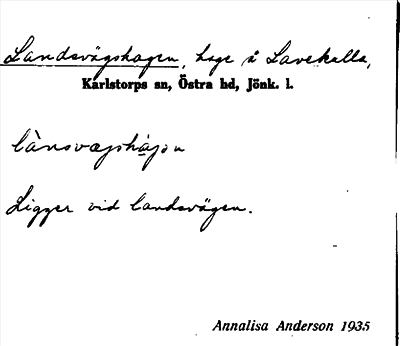 Landsvägshagen, hage å Lavekulla,
Karlstorps sn, Östra hd, Jönk. l.
lànsvægshàgɔn
Ligger vid landsvägen.
Annalisa Anderson 1935